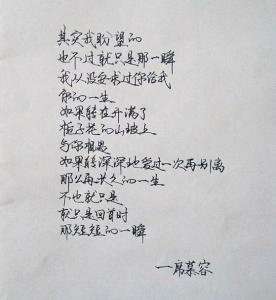 其实我盼望的
也不过就只是那一瞬
我从没要求过你给我
你的一生
如果能在开满了
栀子花的山坡上
与你相遇
如果能深深地爱过一次再别离
那么再长久的一生
不也就只是
就只是回首时
那短短的一瞬
一席慕容